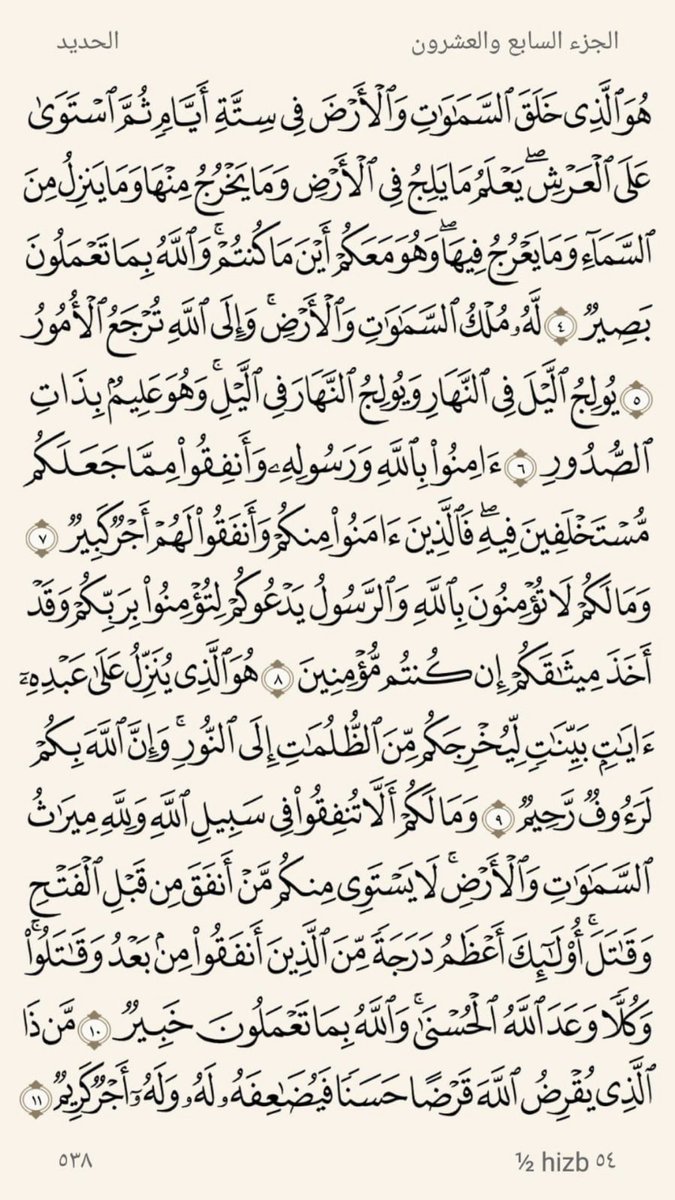 الجزء السابع والعشرون الحديد
هُوَ ٱلَّذِى خَلَقَ ٱلسَّمَٰوَٰتِ وَٱلْأَرْضَ فِى سِتَّةِ أَيَّامٍ ثُمَّ ٱسْتَوَىٰ
عَلَى ٱلْعَرْشِ ۖ يَعْلَمُ مَا يَلِجُ فِى ٱلْأَرْضِ وَمَا يَخْرُجُ مِنْهَا وَمَا يَنزِلُ مِنَ
ٱلسَّمَآءِ وَمَا يَعْرُجُ فِيهَا ۖ وَهُوَ مَعَكُمْ أَيْنَ مَا كُنتُمْ ۚ وَٱللَّهُ بِمَا تَعْمَلُونَ
بَصِيرٌ ٤ لَّهُۥ مُلْكُ ٱلسَّمَٰوَٰتِ وَٱلْأَرْضِ ۚ وَإِلَى ٱللَّهِ تُرْجَعُ ٱلْأُمُورُ
٥ يُولِجُ ٱلَّيْلَ فِى ٱلنَّهَارِ وَيُولِجُ ٱلنَّهَارَ فِى ٱلَّيْلِ ۚ وَهُوَ عَلِيمٌۢ بِذَاتِ
ٱلصُّدُورِ ٦ ءَامِنُوا۟ بِٱللَّهِ وَرَسُولِهِۦ وَأَنفِقُوا۟ مِمَّا جَعَلَكُم
مُّسْتَخْلَفِينَ فِيهِ ۖ فَٱلَّذِينَ ءَامَنُوا۟ مِنكُمْ وَأَنفَقُوا۟ لَهُمْ أَجْرٌ كَبِيرٌ ٧
وَمَا لَكُمْ لَا تُؤْمِنُونَ بِٱللَّهِ ۙ وَٱلرَّسُولُ يَدْعُوكُمْ لِتُؤْمِنُوا۟ بِرَبِّكُمْ وَقَدْ
أَخَذَ مِيثَٰقَكُمْ إِن كُنتُم مُّؤْمِنِينَ ٨ هُوَ ٱلَّذِى يُنَزِّلُ عَلَىٰ عَبْدِهِۦٓ
ءَايَٰتٍۭ بَيِّنَٰتٍ لِّيُخْرِجَكُم مِّنَ ٱلظُّلُمَٰتِ إِلَى ٱلنُّورِ ۚ وَإِنَّ ٱللَّهَ بِكُمْ
لَرَءُوفٌ رَّحِيمٌ ٩ وَمَا لَكُمْ أَلَّا تُنفِقُوا۟ فِى سَبِيلِ ٱللَّهِ وَلِلَّهِ مِيرَٰثُ
ٱلسَّمَٰوَٰتِ وَٱلْأَرْضِ ۚ لَا يَسْتَوِى مِنكُم مَّنْ أَنفَقَ مِن قَبْلِ ٱلْفَتْحِ
وَقَٰتَلَ ۚ أُو۟لَٰٓئِكَ أَعْظَمُ دَرَجَةً مِّنَ ٱلَّذِينَ أَنفَقُوا۟ مِنۢ بَعْدُ وَقَٰتَلُوا۟ ۚ
وَكُلًّا وَعَدَ ٱللَّهُ ٱلْحُسْنَىٰ ۚ وَٱللَّهُ بِمَا تَعْمَلُونَ خَبِيرٌ ١٠ مَّن ذَا
ٱلَّذِى يُقْرِضُ ٱللَّهَ قَرْضًا حَسَنًا فَيُضَٰعِفَهُۥ لَهُۥ وَلَهُۥٓ أَجْرٌ كَرِيمٌ ١١
½ hizb ٥٤ ٥٣٨